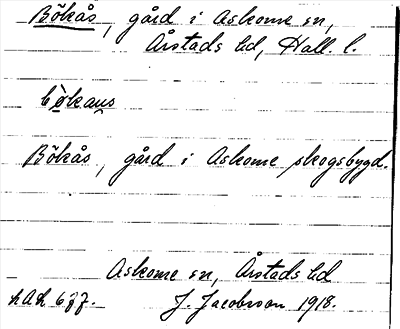 Bökås, gård i Askome sn,
Årstads hd, Hall. l.
bö̀kaus
Bökås, gård i Askome skogsbygd.
Askome sn, Årstads hd
LAL 677. J. Jacobsson 1918.